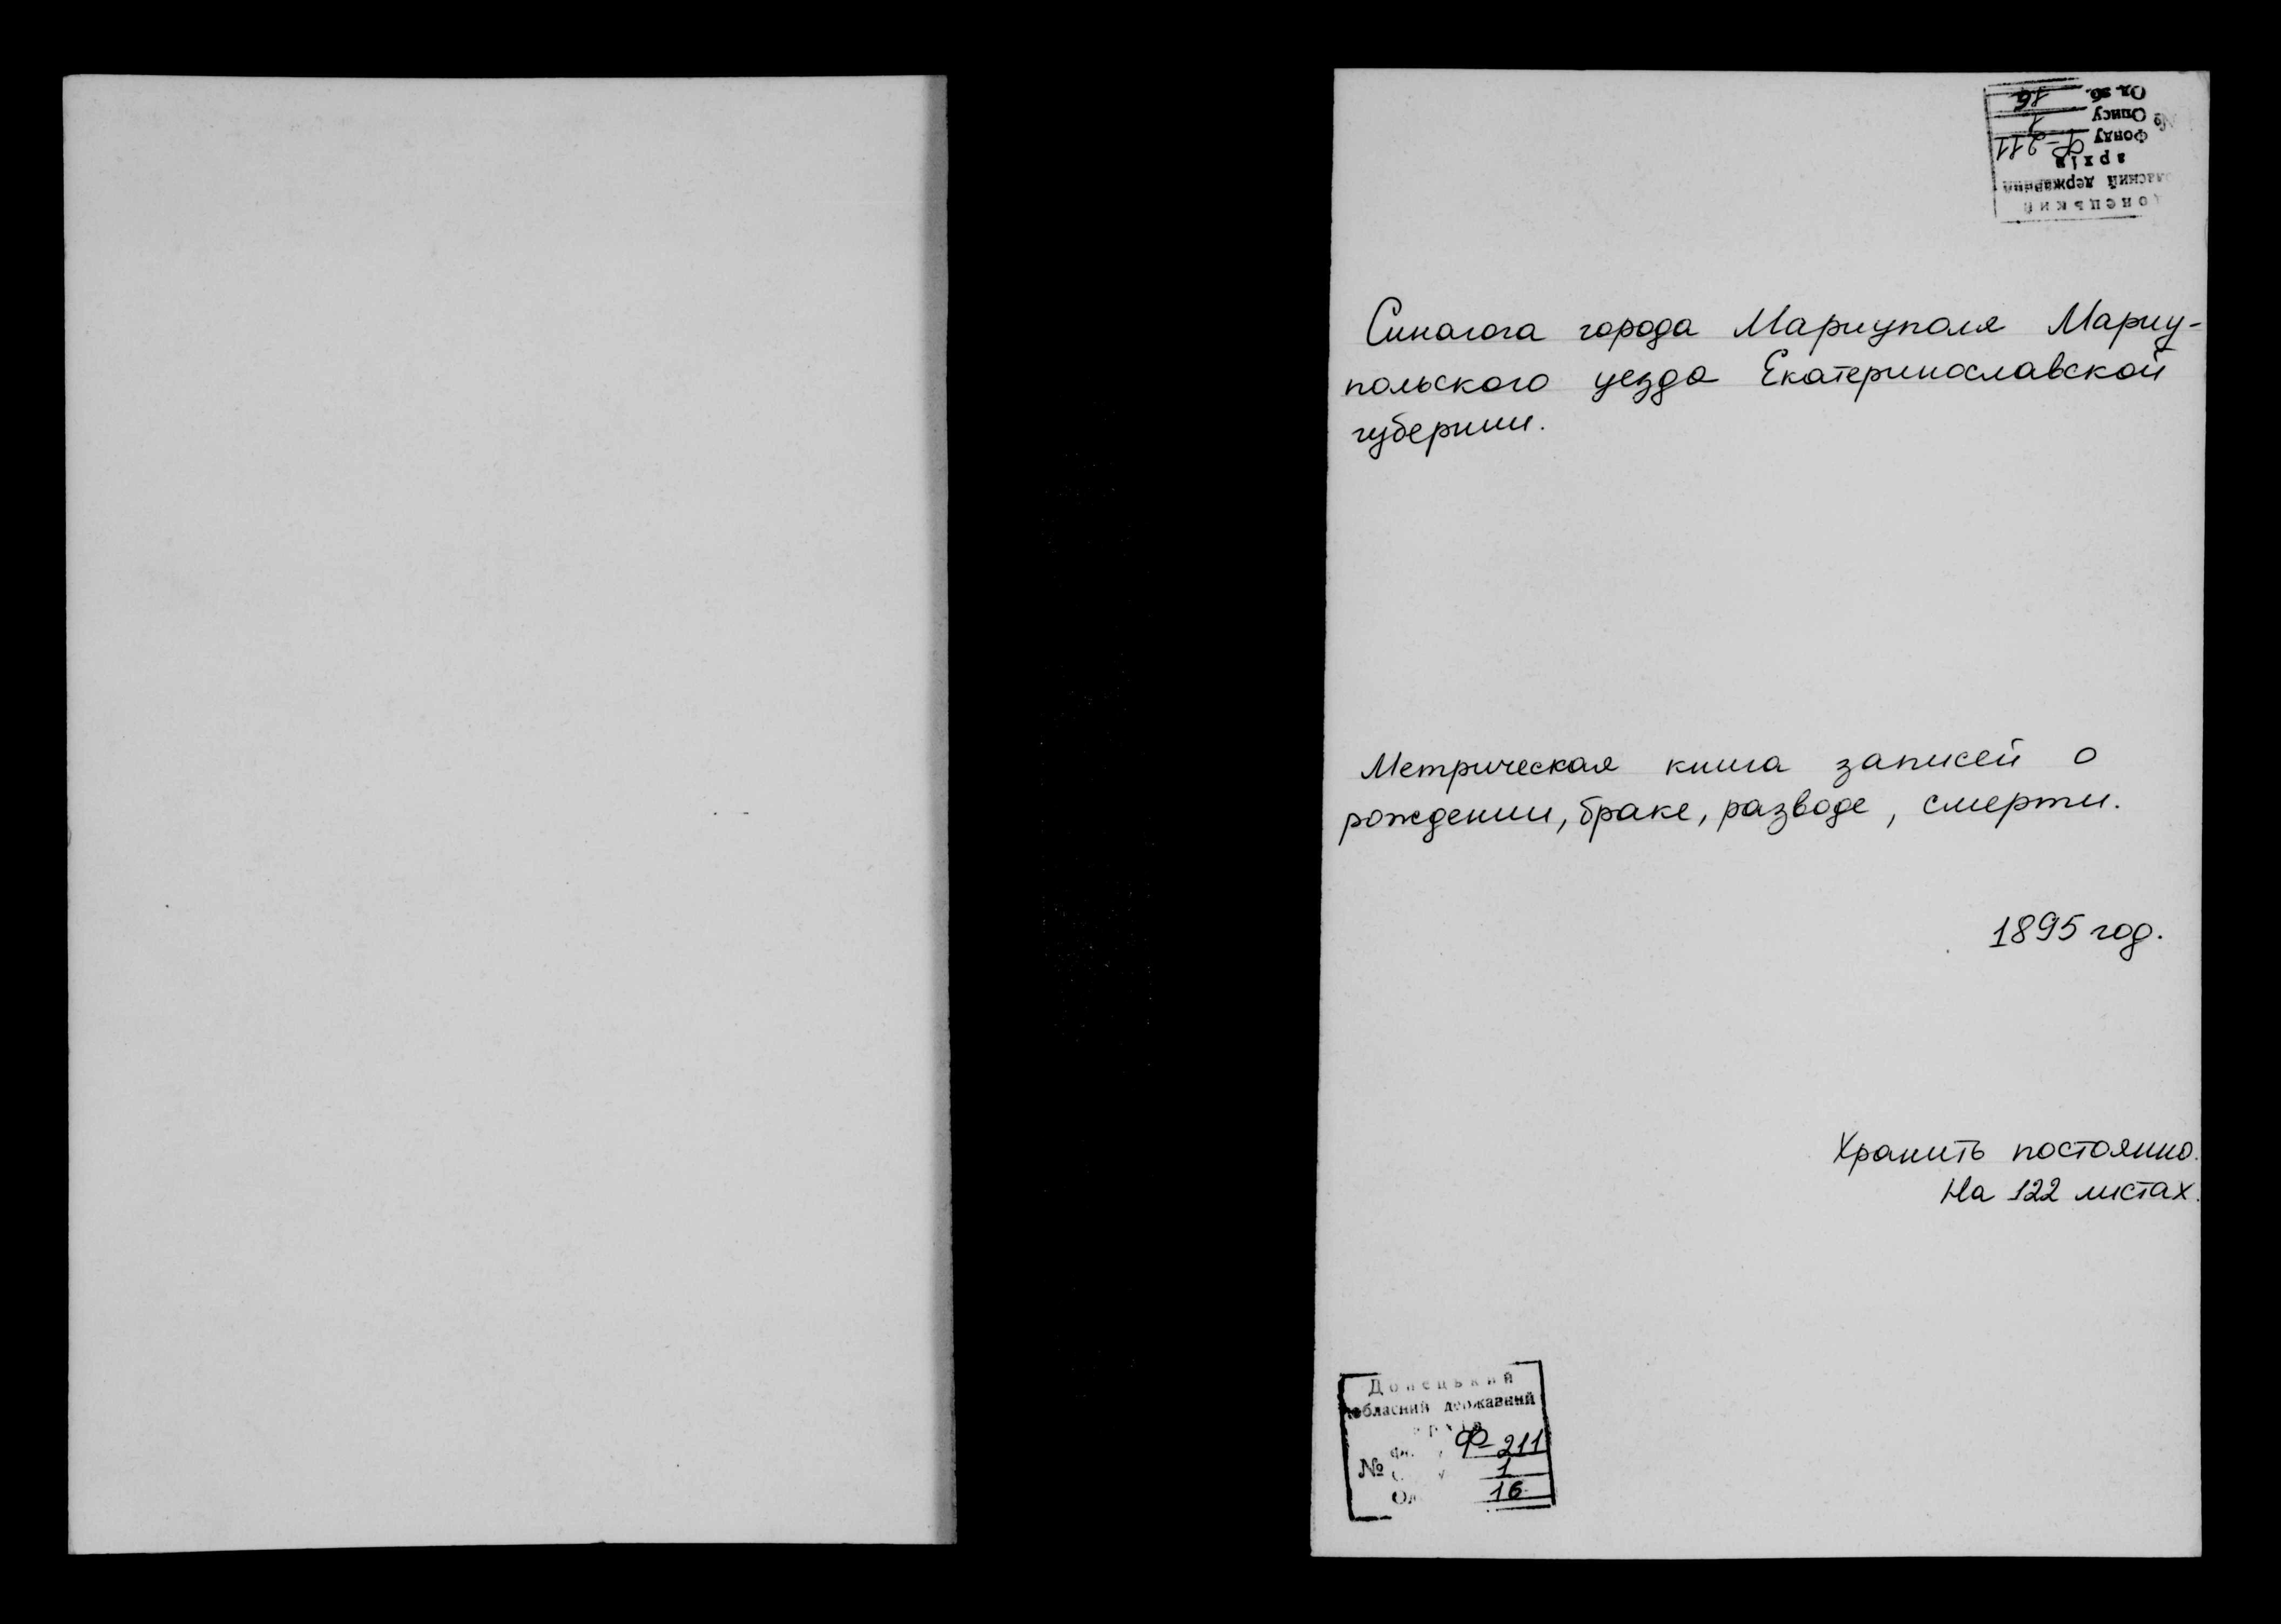 Донецький
обласний державний
архів
№
Фонду Ф-211
Опису 1
Од. зб. 16
Синагога города Мариуполя Мариу-
польского уезда Екатеринославской
губернии.
Метрическая книга записей о
рождении, браке, разводе, смерти.
1895 год.
Хранить постоянно.
На 122 листах.
Донецький
обласний державний
архів
№
Ф-211
1
16